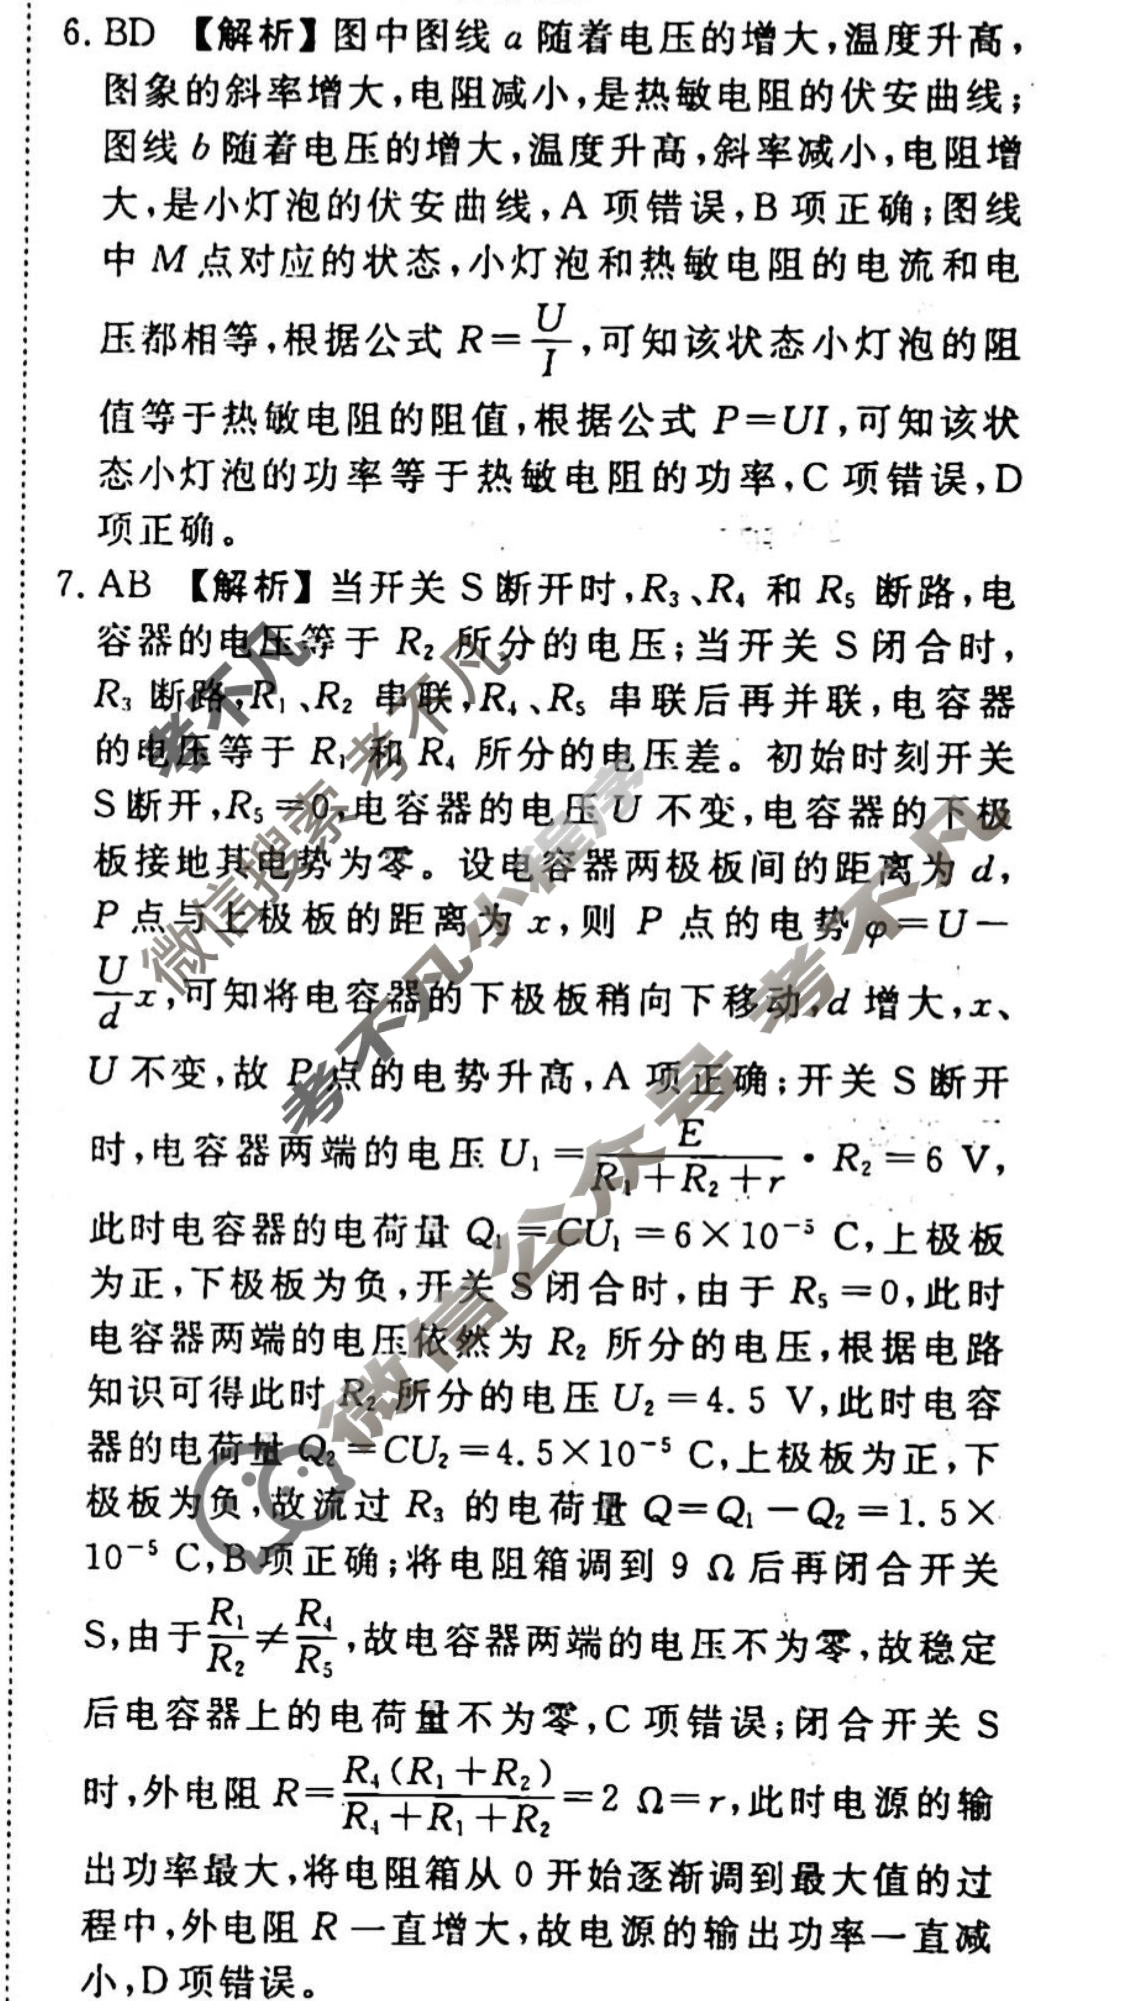 6. BD 【解析】图中图线 a 随着电压的增大,温度升高,
图象的斜率增大,电阻减小,是热敏电阻的伏安曲线;
图线 b 随着电压的增大,温度升高,斜率减小,电阻增
大,是小灯泡的伏安曲线,A 项错误,B 项正确;图线
中 M 点对应的状态,小灯泡和热敏电阻的电流和电
压都相等,根据公式 R=U/I,可知该状态小灯泡的阻
值等于热敏电阻的阻值,根据公式 P=UI,可知该状
态小灯泡的功率等于热敏电阻的功率,C 项错误,D
项正确。
7. AB 【解析】当开关 S 断开时,R₃、R₄ 和 R₅ 断路,电
容器的电压等于 R₂ 所分的电压;当开关 S 闭合时,
R₃ 断路,R₁、R₂ 串联,R₄、R₅ 串联后再并联,电容器
的电压等于 R₁ 和 R₄ 所分的电压差。初始时刻开关
S 断开,R₅=0,电容器的电压 U 不变,电容器的下极
板接地其电势为零。设电容器两极板间的距离为 d,
P 点与上极板的距离为 x,则 P 点的电势 φ=U−
U/d x,可知将电容器的下极板稍向下移动,d 增大,x、
U 不变,故 P 点的电势升高,A 项正确;开关 S 断开
时,电容器两端的电压 U₁=E/(R₁+R₂+r)·R₂=6 V,
此时电容器的电荷量 Q₁=CU₁=6×10⁻⁵ C,上极板
为正,下极板为负,开关 S 闭合时,由于 R₅=0,此时
电容器两端的电压依然为 R₂ 所分的电压,根据电路
知识可得此时 R₂ 所分的电压 U₂=4.5 V,此时电容
器的电荷量 Q₂=CU₂=4.5×10⁻⁵ C,上极板为正,下
极板为负,故流过 R₃ 的电荷量 Q=Q₁−Q₂=1.5×
10⁻⁵ C,B 项正确;将电阻箱调到 9 Ω 后再闭合开关
S,由于 R₁/R₂≠R₄/R₅,故电容器两端的电压不为零,故稳定
后电容器上的电荷量不为零,C 项错误;闭合开关 S
时,外电阻 R=R₄(R₁+R₂)/(R₄+R₁+R₂)=2 Ω=r,此时电源的输
出功率最大,将电阻箱从 0 开始逐渐调到最大值的过
程中,外电阻 R 一直增大,故电源的输出功率一直减
小,D 项错误。
考不凡
微信搜索 考不凡
考不凡小程序
微信公众号 考不凡